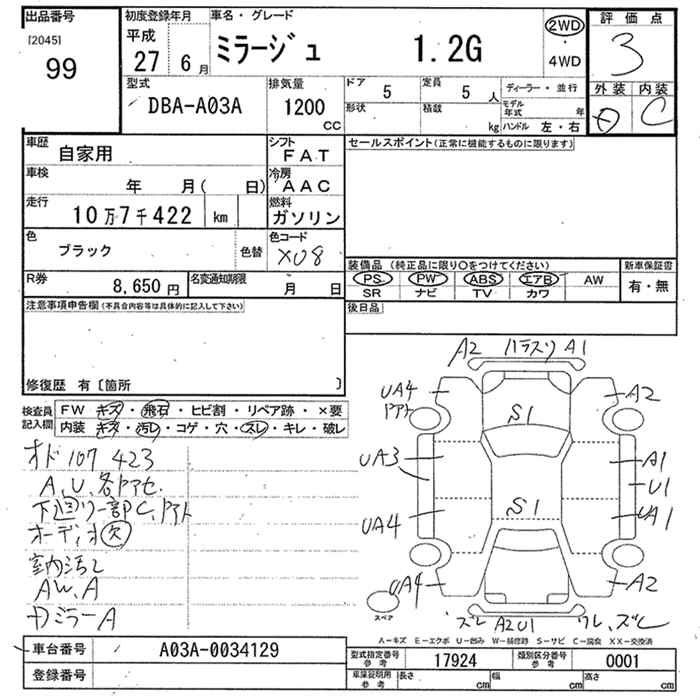 出品番号
[2045]
99
初度登録年月
平成
27 6月
車名・グレード
ミラージュ 1.2G
2WD
・
4WD
評価点
3
外装 内装
C
型式
DBA-A03A
排気量
1200
CC
ドア
5
定員
5 人
形状
積載
kg
ディーラー・並行
モデル年式 年
ハンドル 左・右
車歴
自家用
シフト
FAT
車検
年 月( 日)
冷房
AAC
走行
10万7千422 km
燃料
ガソリン
色
ブラック
色替
色コード
X08
R券
8,650円
名変通知期限
月 日
セールスポイント(正常に機能するものに限ります)
装備品(純正品に限り○をつけてください)
PS PW ABS エアB AW
SR ナビ TV カワ
新車保証書
有・無
後日品
注意事項申告欄(不具合内容等は具体的に記入して下さい)
修復歴 有[箇所 ]
検査員
記入欄
FW キズ・飛石・ヒビ割・リペア跡・×要
内装 キズ・汚レ・コゲ・穴・スレ・キレ・破レ
オド107423
A,U,各アセ
下廻リ一部C,アト
オーディオ欠
室内汚レ
AW,A
ドミラーA
A2 ハラスリ A1
UA4
ドアト
A2
S1
UA3
A1
U1
S1
UA4
UA1
UA4
A2
スペア
ズレ A2U1 ワレ、ズレ
A−キズ E−エクボ U−凹み W−補修跡 S−サビ C−腐食 XX−交換済
車台番号
A03A-0034129
登録番号
型式指定番号
参考
17924
類別区分番号
参考
0001
車庫証明用
参考
長さ cm 幅 cm 高さ cm